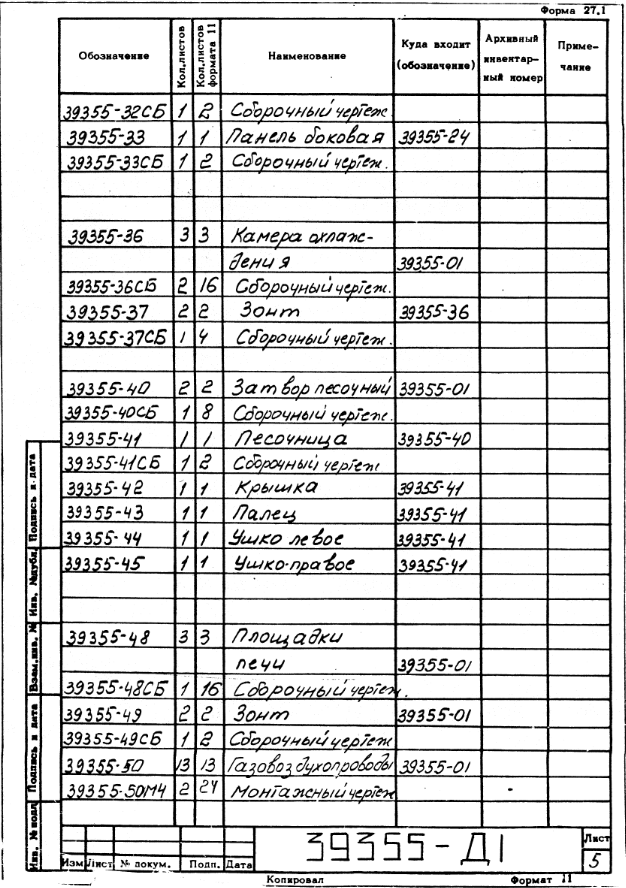 Форма 27.1
Обозначение Кол.листов Кол.листов формата 11 Наименование Куда входит (обозначение) Архивный инвентарный номер Примечание
39355-32СБ 1 2 Сборочный чертеж
39355-33 1 1 Панель боковая 39355-24
39355-33СБ 1 2 Сборочный чертеж.
39355-36 3 3 Камера охлаж-
дения 39355-01
39355-36СБ 2 16 Сборочный чертеж.
39355-37 2 2 Зонт 39355-36
39355-37СБ 1 4 Сборочный чертеж.
39355-40 2 2 Затвор песочный 39355-01
39355-40СБ 1 8 Сборочный чертеж.
39355-41 1 1 Песочница 39355-40
39355-41СБ 1 2 Сборочный чертеж
39355-42 1 1 Крышка 39355-41
39355-43 1 1 Палец 39355-41
39355-44 1 1 Ушко левое 39355-41
39355-45 1 1 Ушко правое 39355-41
39355-48 3 3 Площадки
печи 39355-01
39355-48СБ 1 16 Сборочный чертеж.
39355-49 2 2 Зонт 39355-01
39355-49СБ 1 2 Сборочный чертеж
39355-50 13 13 Газовоздухопроводы 39355-01
39355-50М4 2 24 Монтажный чертеж
Инв. № подл Подпись и дата Взам.инв. № Инв. №дубл. Подпись и дата
39355-Д1
Лист
5
Изм Лист № докум. Подп. Дата
Копировал Формат 11